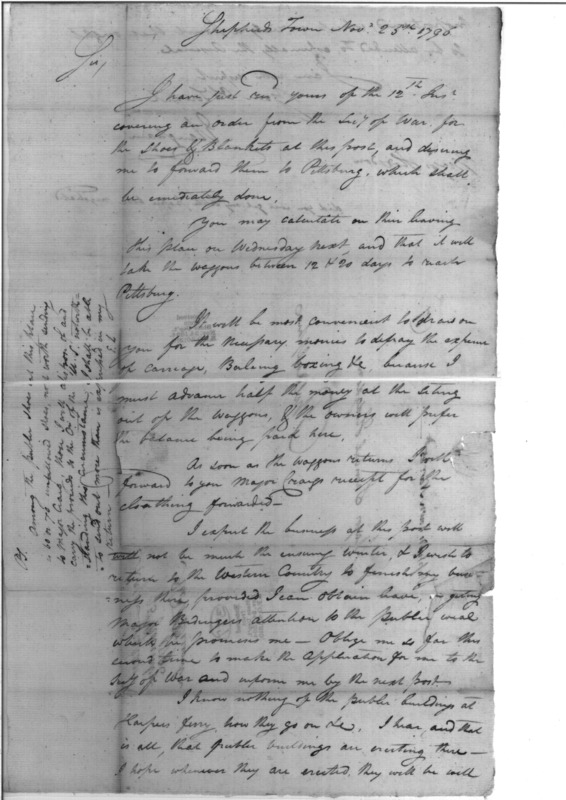 Shepherds Town Novr 25th 1796
Sir,
I have just recd yours of the 12th Inst
covering an order from the Secy of War, for
the Shoes & Blankets at this post, and desiring
me to forward them to Pittsburg, which shall
be imediately done.
You may calculate on their leaving
this place on Wednesday next and that it will
take the waggons between 12 & 20 days to reach
Pittsburg.
It will be most convenient to draw on
you for the necessary monies to defray the expence
of carriage, Baleing boxing &c, because I
must advance half the money at the seting
out of the waggons, & the owners will prefer
the balance being paid here.
As soon as the waggons returns I will
forward to you Major Craigs receipt for the
cloathing forwarded—
I expect the business at this Post will
not be much the ensuing winter, & I wish to
return to the Western Country to finish my busi-
ness there, provided I can obtain leave, on geting
Major Bedingers attention to the Public weal
which he promises me — Oblige me so far this
second time to make the Application for me to the
Secy of War and inform me by the next Post
I know nothing of the Public buildings at
Harpers ferry, how they go on &c. I hear, and that
is all, that public buildings are erecting there—
I hope whenever they are erected, they will be well
among the public shoes at this place
is 50 or 70 shoes, not worth sending
to Major Craig, those I only
carry the to the Cr of the U.S. notwith-
standing this circumstance, I shall be able
to send out more than is expressed in my
return